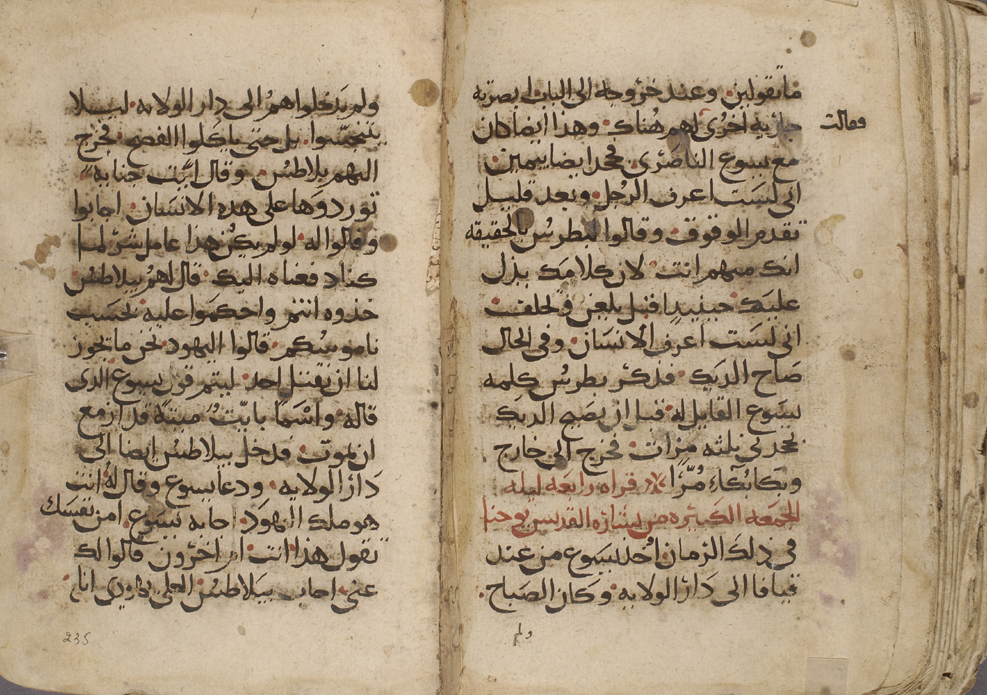 ما تقولين. وعند خروجه الى الباب ابصرته
جاريه اخرى لهم هناك. وهذا ايضا كان
وقالت
مع يسوع الناصرى. فجحد ايضا بيمين.
انى لست اعرف الرجل. وبعد قليل
تقدم الوقوف. وقالوا لبطرس بالحقيقه
انك منهم انت. لان كلامك يدل
عليك. حينيدا قبل يلعن ويحلف
انى لست اعرف الانسان. وفى الحال
صاح الديك. فذكر بطرس كلمه
يسوع القايل له. قبل ان يصيح الديك
تجحدنى ثلثه مرات. فخرج الى خارج
وبكا بكاء مرا قراه رابعه ليله
الجمعه الكبيره من بشاره القديس يوحنا
فى ذلك الزمان اخذ يسوع من عند
قيافا الى دار الولايه. وكان الصباح.
ولم
ولم يدخلوا هم الى دار الولايه. ليلا
يتنجسوا. بل حتى ياكلوا الفصح. فخرج
اليهم بيلاطس. وقال ايت جنايه
توردوها على هذه الانسان. اجابوا
وقالوا له. لو لم يكن هذا عامل شر لما
كنا دفعناه اليك. قال لهم بيلاطس
خذوه انتم واحكموا عليه بحسب
ناموسكم. قالوا اليهود نحن ما يجوز
لنا ان نقتل احد. ليتم قول يسوع الذى
قاله. واسما بايت ميته قد ازمع
ان يموت. فدخل بيلاطس ايضا الى
دار الولايه. ودعا يسوع وقال له انت
هو ملك اليهود. اجابه يسوع. امن نفسك
تقول هذا انت. ام اخرون قالوا لك
عنى. اجاب بيلاطس العلى يهودى انا.
235